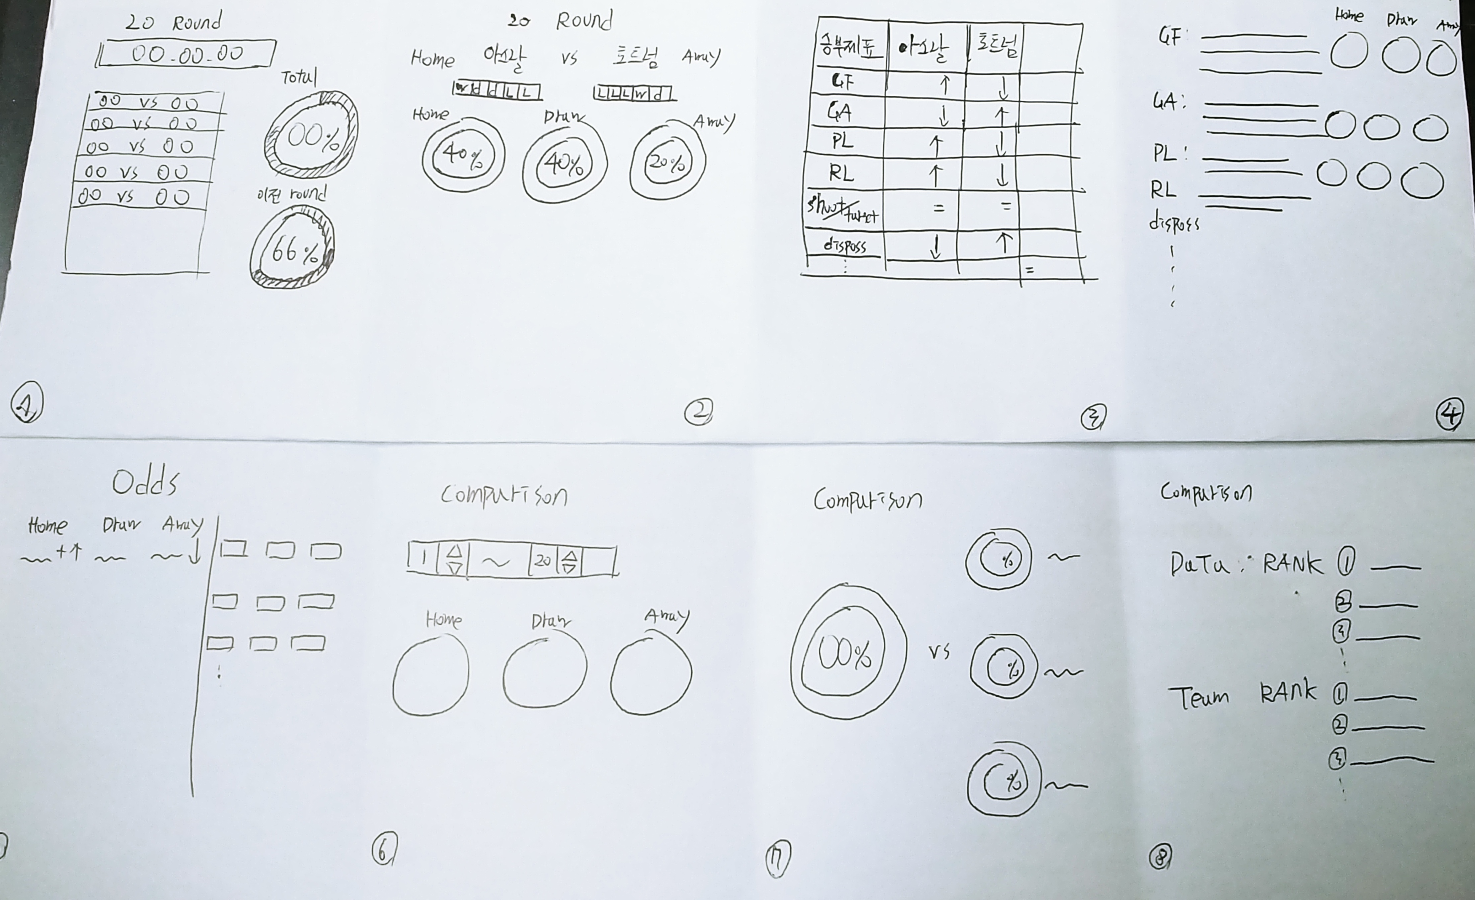 20 Round
00.00.00
Total
00 vs 00
00 vs 00
00 vs 00
00 vs 00
00 vs 00
00%
이전 round
66%
1
20 Round
Home 아스날 vs 토트넘 Away
W d d L L
L L L W d
Home Draw Away
40% 40% 20%
2
승부지표 아스날 토트넘
GF ↑ ↓
GA ↓ ↑
PL ↑ ↓
RL ↑ ↓
Shoot/turget = =
disposs ↓ ↑
=
3
Home Draw Away
GF:
GA:
PL:
RL
disposs
4
Odds
Home Draw Away
+↑ ↓
Comparison
1 ~ 20
Home Draw Away
6
Comparison
%
00% vs %
%
7
Comparison
Data: RANK ①
②
③
Team RANK ①
②
③
8